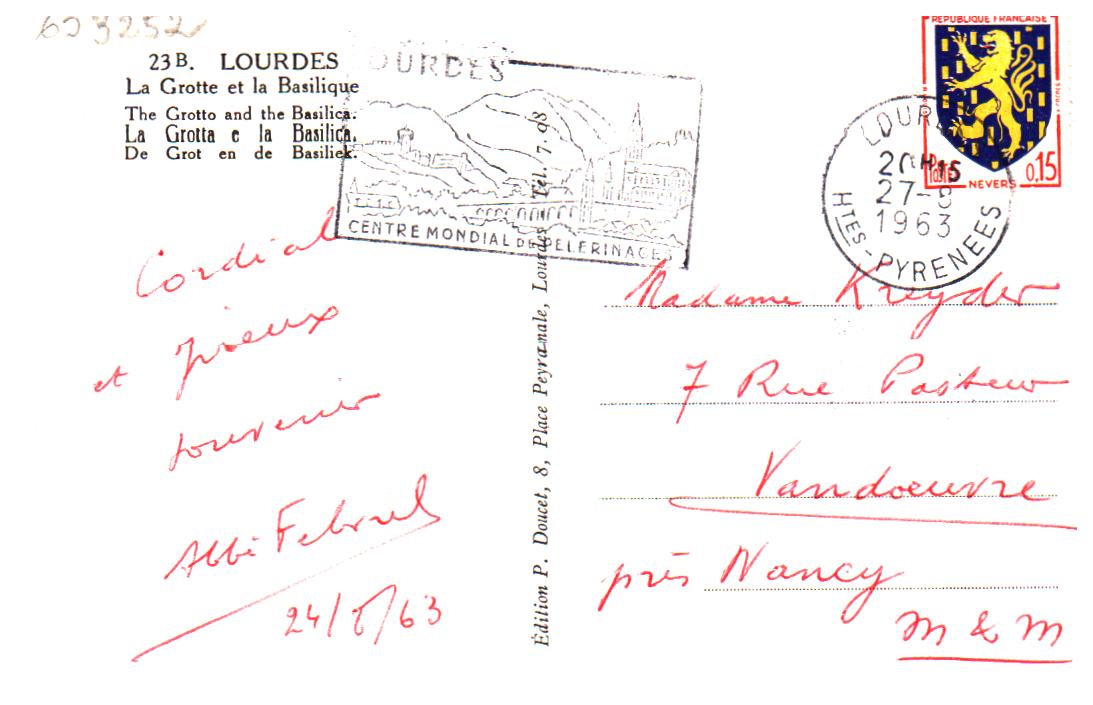 603252
23 B. LOURDES
La Grotte et la Basilique
The Grotto and the Basilica.
La Grotta e la Basilica.
De Grot en de Basiliek.
LOURDES
CENTRE MONDIAL DE PÈLERINAGES
REPUBLIQUE FRANÇAISE
0,15
NEVERS
LOURDES
20H15
27-8
1963
HTES-PYRENEES
Cordial
et pieux
souvenir
Abbé
24/8/63
Édition P. Doucet, 8, Place Peyramale, Lourdes Tél. 7-98
Madame Kreyder
7 Rue Pasteur
Vandoeuvre
près Nancy
M & M